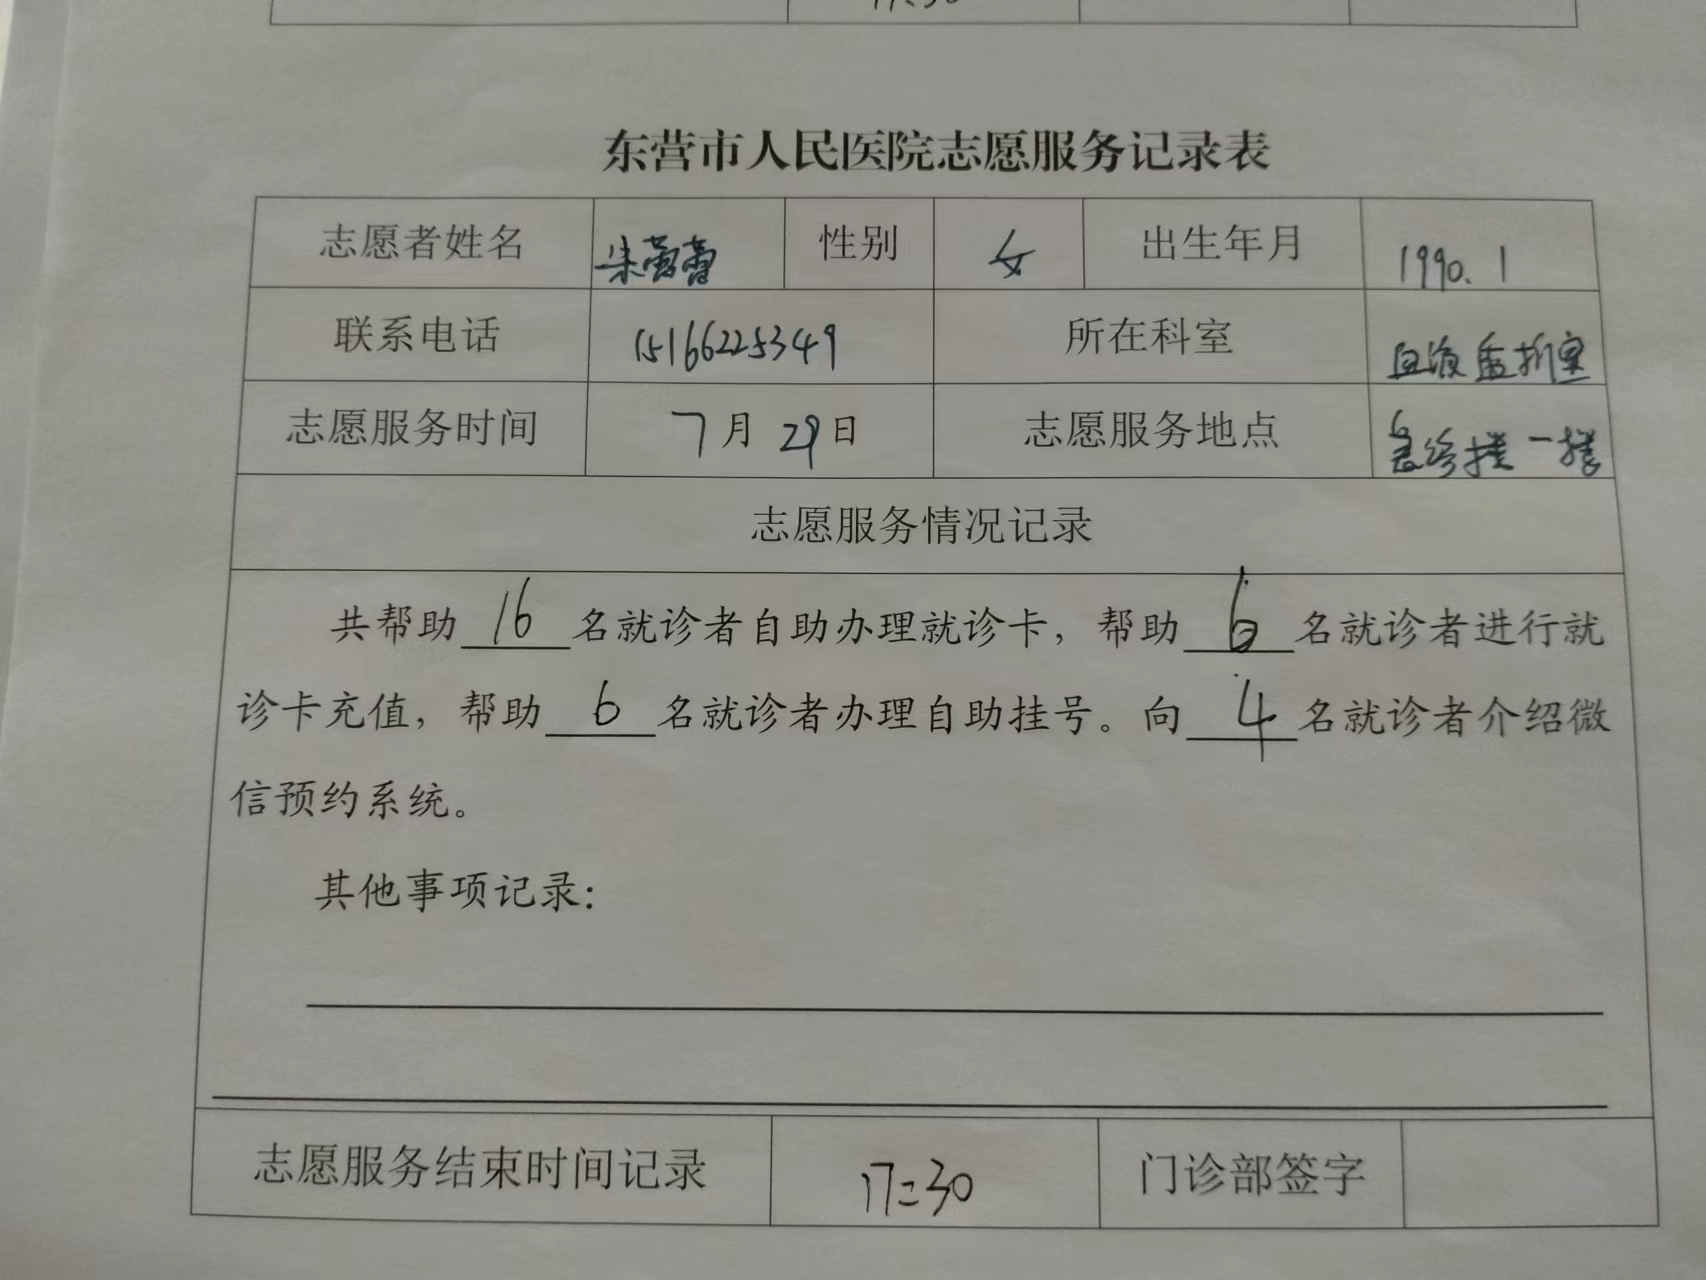 17:30
东营市人民医院志愿服务记录表
志愿者姓名 朱蕾蕾 性别 女 出生年月 1990.1
联系电话 15166225349 所在科室 血液透析室
志愿服务时间 7月29日 志愿服务地点 急诊楼一楼
志愿服务情况记录
共帮助16名就诊者自助办理就诊卡，帮助6名就诊者进行就
诊卡充值，帮助6名就诊者办理自助挂号。向4名就诊者介绍微
信预约系统。
其他事项记录：
志愿服务结束时间记录 17:30 门诊部签字